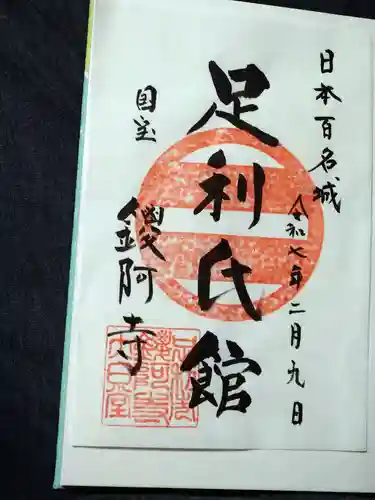 日本百名城
令和七年二月九日
足利氏館
国宝
鑁阿寺